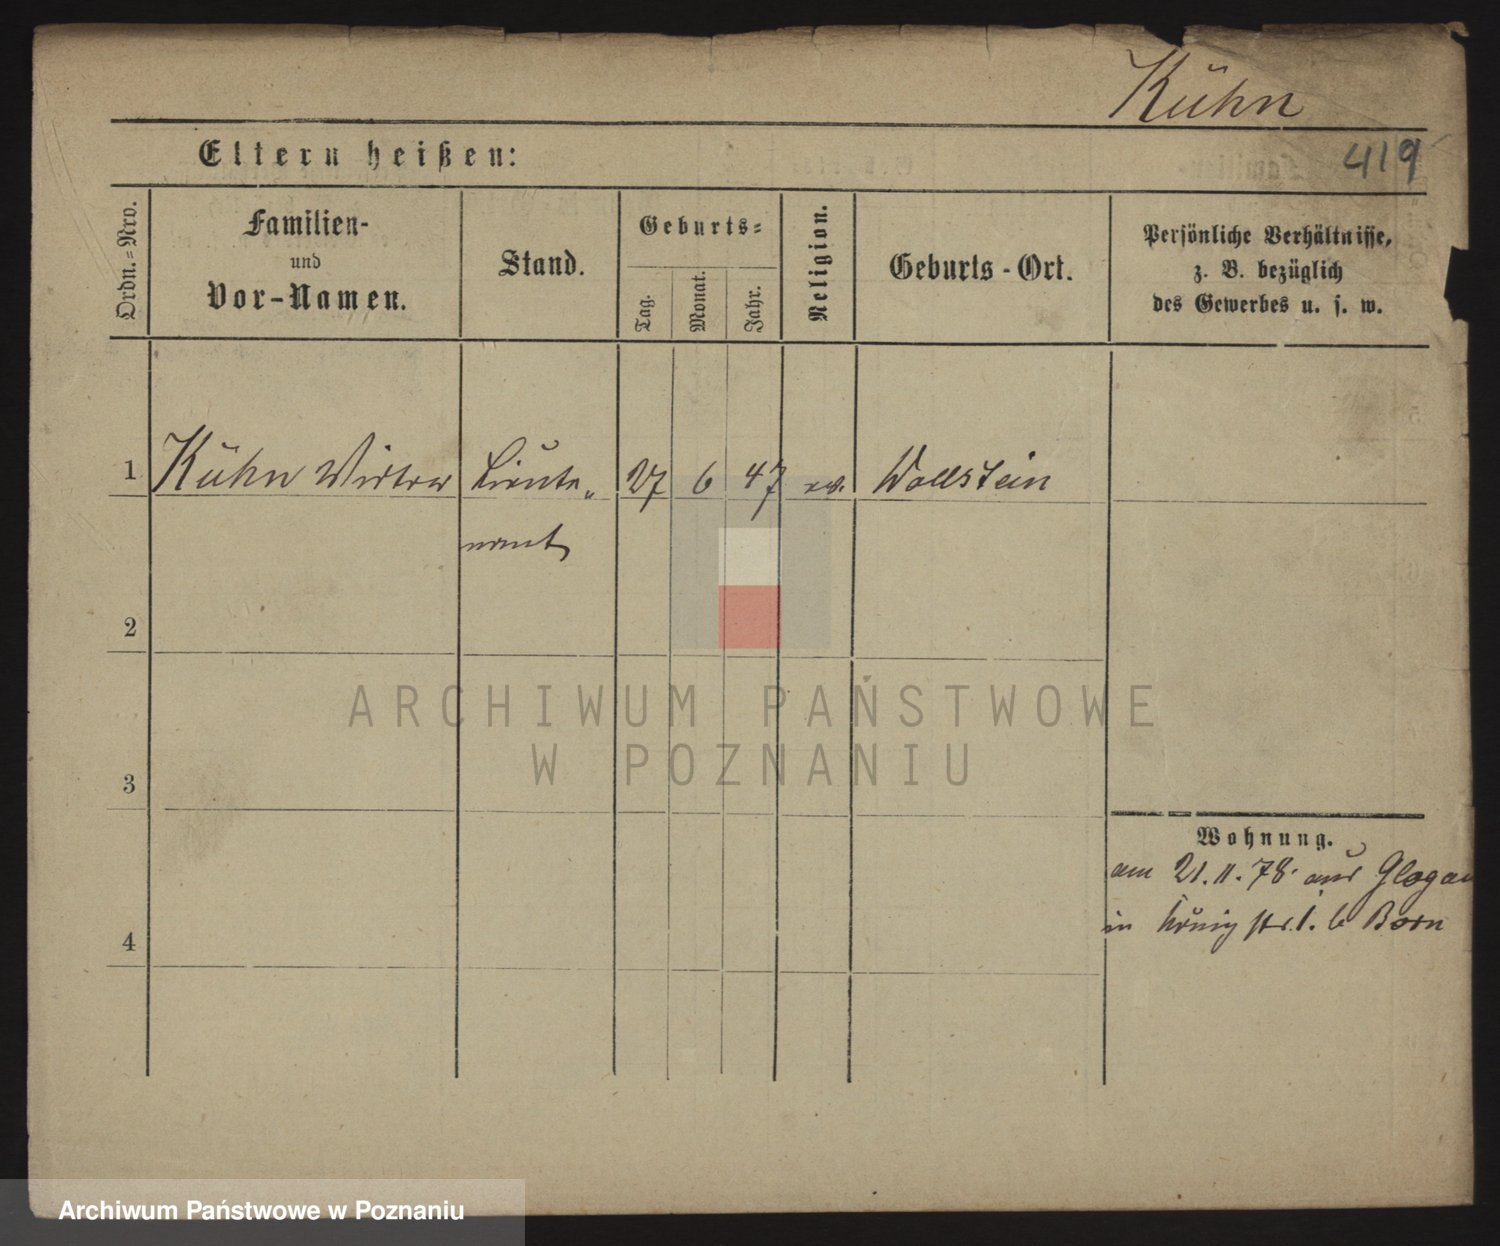 Kühn
419
Eltern heißen:
Ordn.=Nro.
Familien-
und
Vor-Namen.
Stand.
Geburts=
Tag.
Monat.
Jahr.
Religion.
Geburts-Ort.
Persönliche Verhältnisse,
z. B. bezüglich
des Gewerbes u. s. w.
1 Kühn Lieute„ 27 6 47 ev. Wollstein
nant
2
3
4
Wohnung.
am 21.11.78. aus Glogau
in König str. 1. b Born
ARCHIWUM PAŃSTWOWE
W POZNANIU
Archiwum Państwowe w Poznaniu